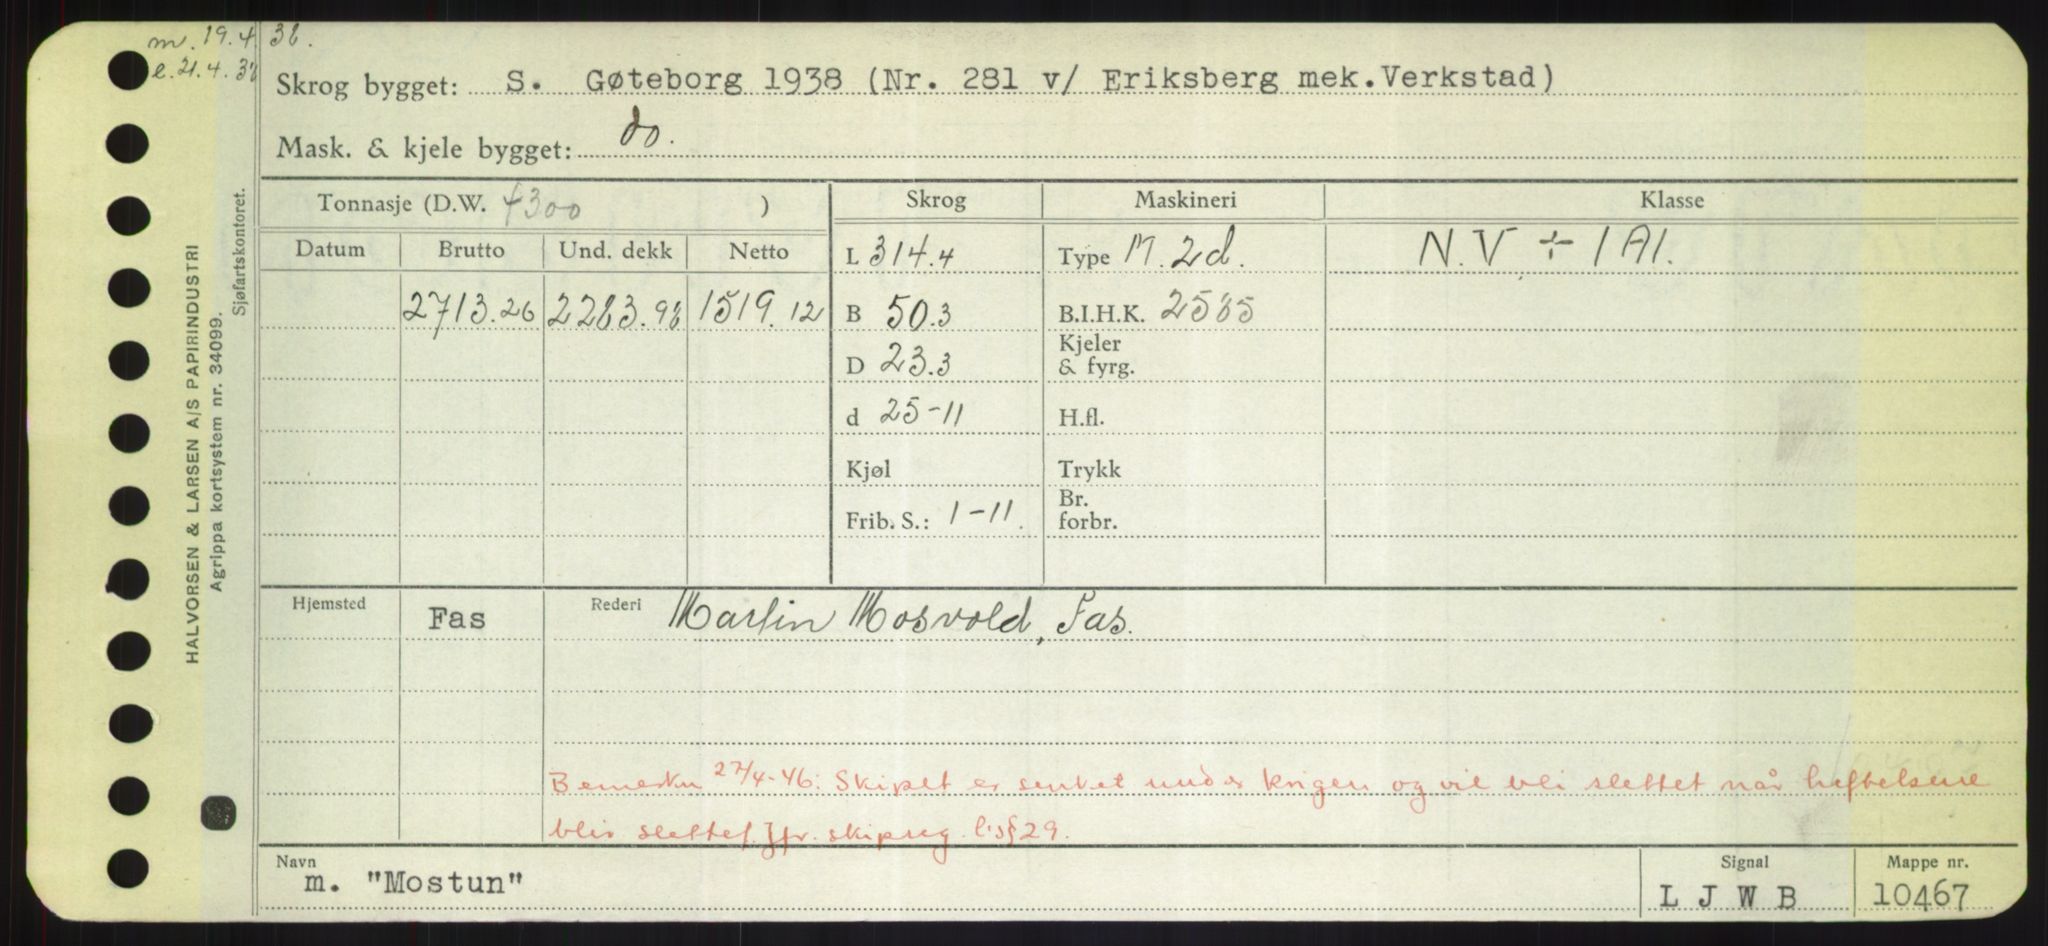 m. 19.4.38.
e. 21.4.38
Skrog bygget: S. Gøteborg 1938 (Nr. 281 v/ Eriksberg mek.Verkstad)
Mask. & kjele bygget: do.
Tonnasje (D.W. 4300 )
Skrog
Maskineri
Klasse
Datum
Brutto
Und. dekk
Netto
L 314.4
Type M. 2d.
N.V. ÷ 1A1.
2713.26
2283.98
1519.12
B 50.3
B.I.H.K. 2585
D 23.3
Kjeler
& fyrg.
d 25-11
H.fl.
Kjøl
Trykk
Frib. S.: 1-11.
Br.
forbr.
Hjemsted
Fas
Rederi Martin Mosvold, Fas.
Bemerkn 27/4-46: Skipet er senket under krigen og vil bli slettet når heftelsene
blir slettet. Jfr. skipsreg. l's § 29.
Navn
m. "Mostun"
Signal
L J W B
Mappe nr.
10467
HALVORSEN & LARSEN A/S PAPIRINDUSTRI
Agrippa kortsystem nr. 34099.
Sjøfartskontoret.